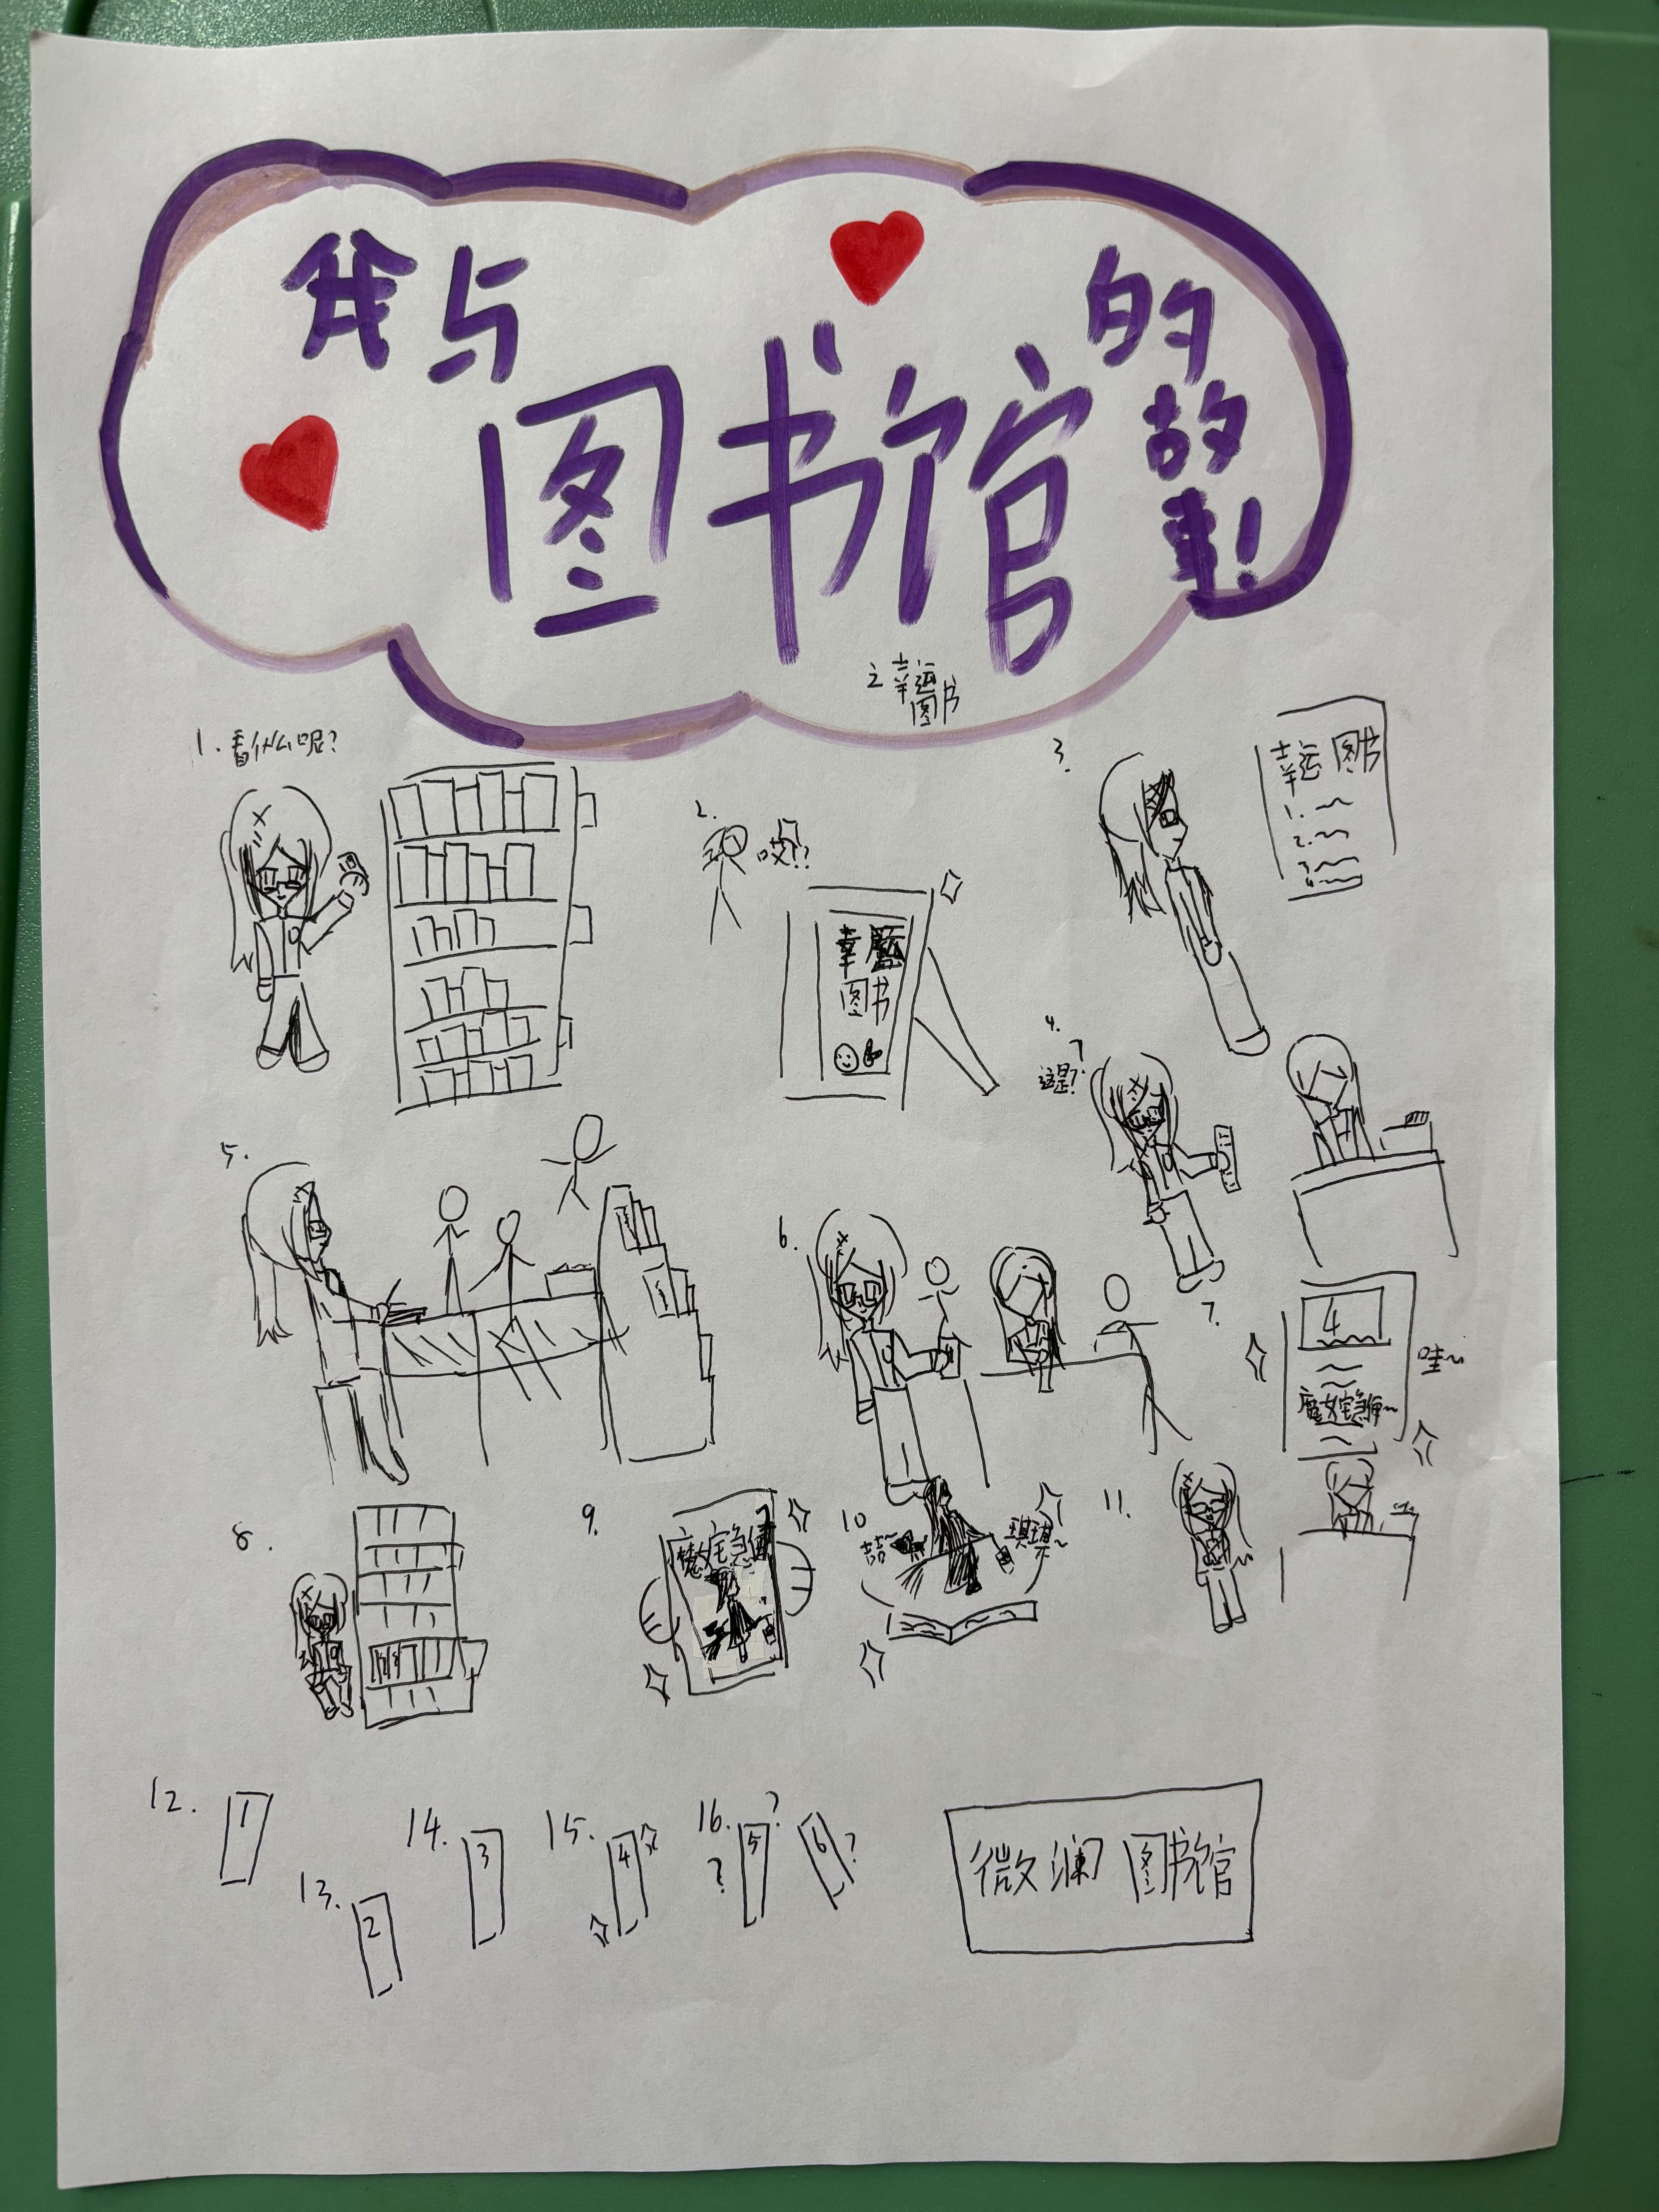 我与
图书馆
的
故
事!
之幸运
图书
1.看什么呢?
2.
哎!?
幸
图书
3.
幸运图书
1.
2.
3.
4.
4.
?
这是?
5.
6.
7.
4
哇~
魔女宅急便~
8.
9.
魔女宅急便
10
吉吉~
琪琪~
11.
12.
1
13.
2
14.
3
15.
4
16.
5
?
?
6
?
微澜图书馆